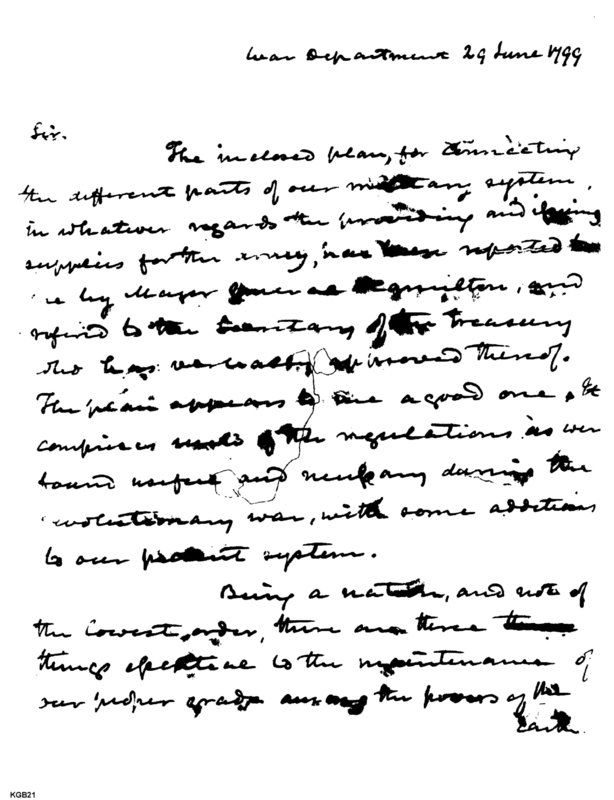 War Department 29 June 1799
Sir.
The inclosed plan, for connecting
the different parts of our military system,
in whatever regards the providing and issuing
supplies for the army, has been reported to
me by Major General Hamilton, and
referred to the Secretary of the Treasury
who has verbally approved thereof.
The plan appears to me a good one, &
comprises such of the regulations as were
found useful and necessary during the
revolutionary war, with some additions
to our present system.
Being a nation, and not of
the lowest order, there are three
things essential to the maintenance of
our proper grade among the powers of the
Earth.
KGB21